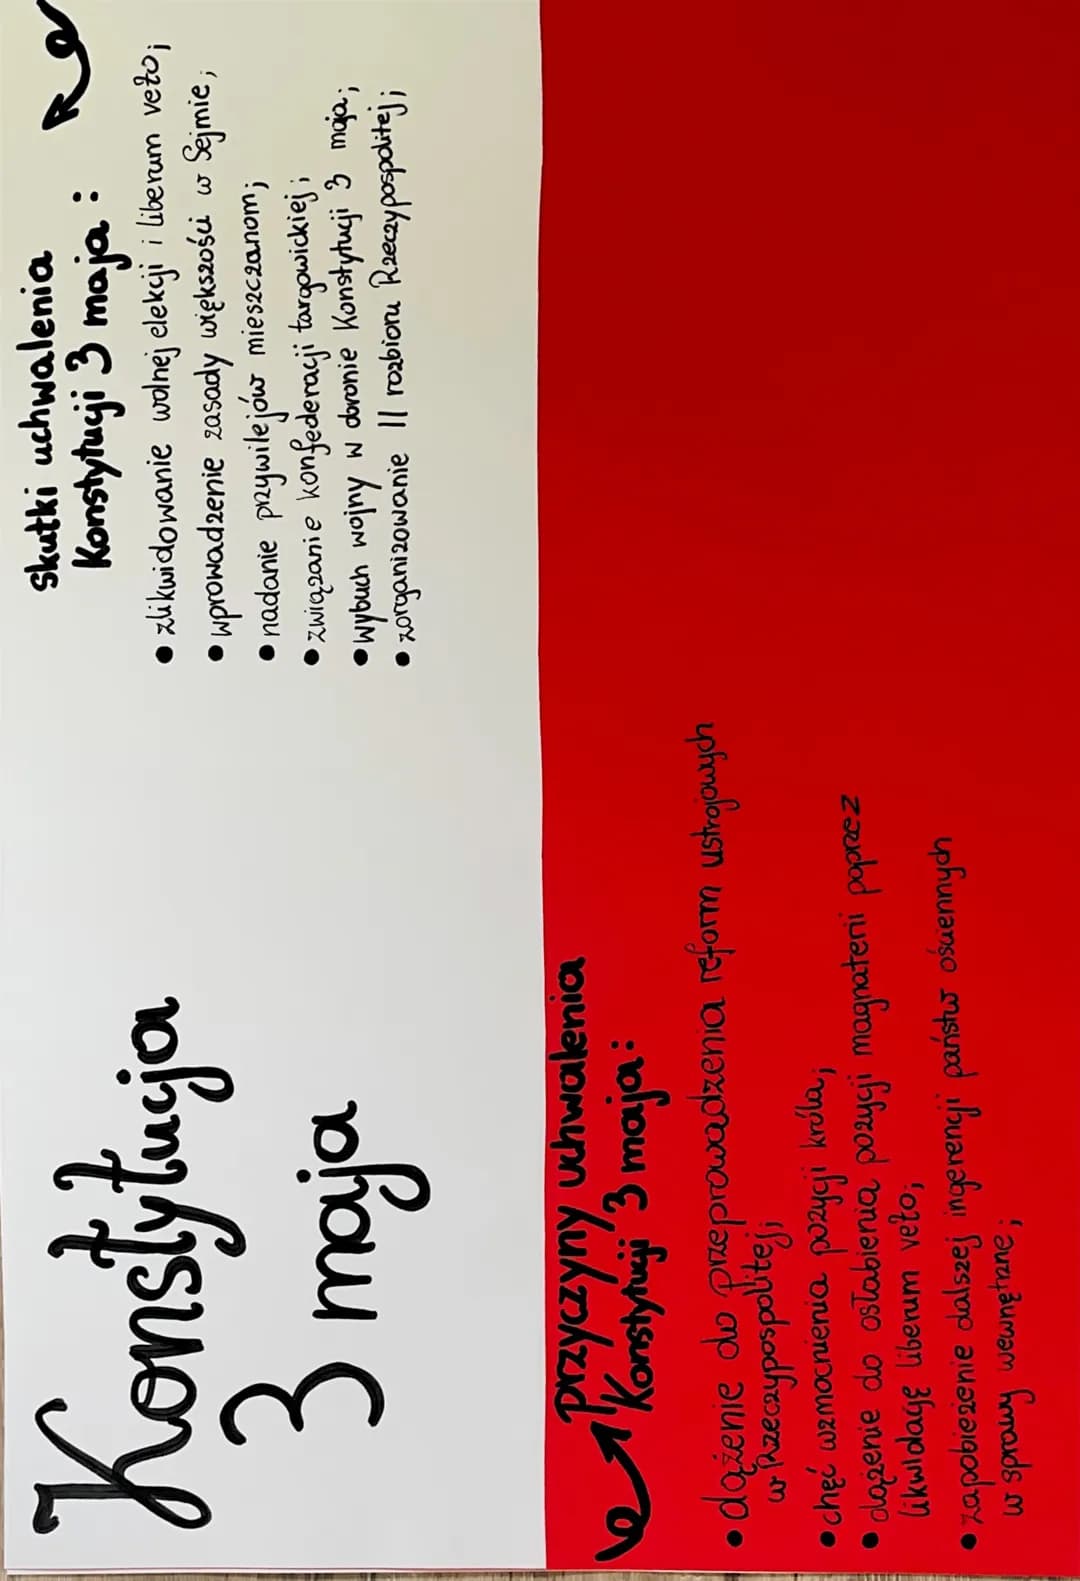 Konstytucja
3 maja
skutki uchwalenia
Konstytucji 3 maja:
• zlikwidowanie wolnej elekcji i liberum veto;
• wprowadzenie zasady większości w Sejmie;
• nadanie przywilejów mieszczanom;
• związanie konfederacji targowickiej;
• wybuch wojny w obronie Konstytucji 3 maja;
• zorganizowanie II rozbioru Rzeczypospolitej;
przyczyny uchwalenia
Konstytucji 3 maja:
• dążenie do przeprowadzenia reform ustrojowych
w Rzeczypospolitej;
• chęć wzmocnienia pozycji króla;
• dążenie do osłabienia pozycji magnaterii poprzez
likwidację liberum veto;
• zapobieżenie dalszej ingerencji państw ościennych
w sprawy wewnętrzne;